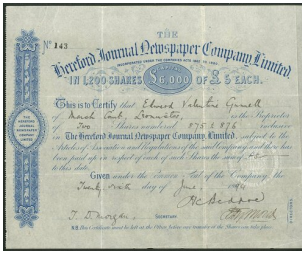 THE
No 143
Hereford Journal Newspaper Company Limited.
INCORPORATED UNDER THE COMPANIES ACTS 1862 TO 1890.
CAPITAL £6,000
IN 1,200 SHARES OF £5 EACH.
This is to Certify that Edward Valentine
March Court, Leominster is the Proprietor
of Two Shares numbered 875 & 876 inclusive
in The Hereford Journal Newspaper Company, Limited, subject to the
Articles of Association and Regulations of the said Company and there has
been paid up in respect of each of such Shares the sum of £5
to this date.
Given under the Common Seal of the Company, the
Twenty sixth day of June
T. D. Morgan SECRETARY
N.B. This Certificate must be left at the Office before any transfer of the Shares can take place.
THE HEREFORD JOURNAL NEWSPAPER COMPANY LIMITED